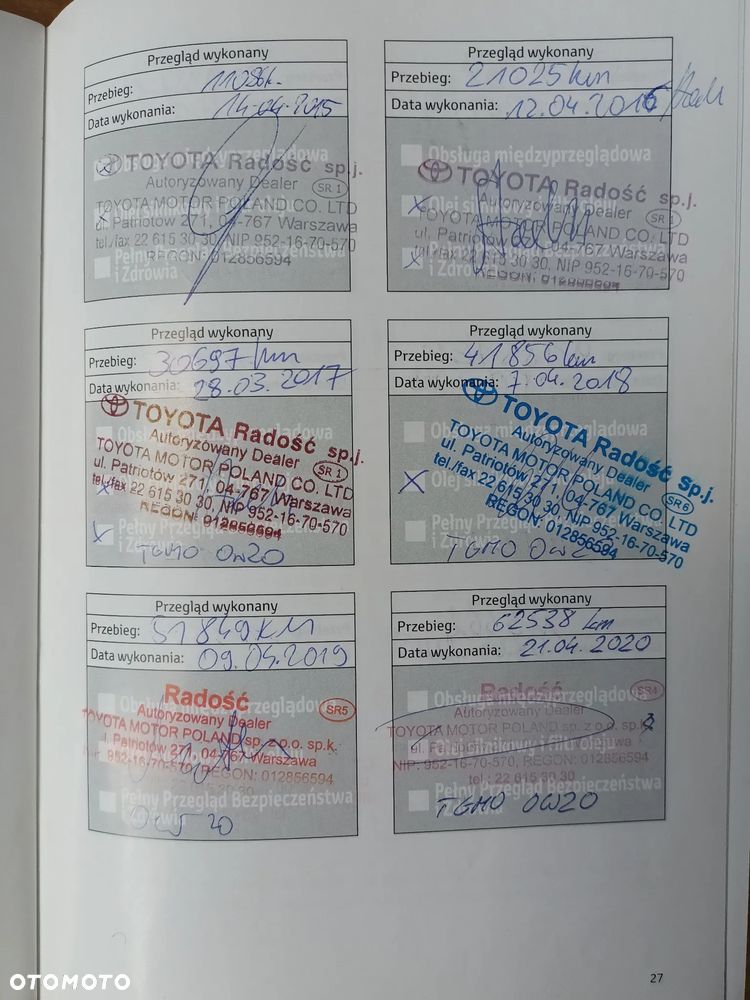 Przegląd wykonany
Przebieg: 11086k.
Data wykonania: 14.04.2015
Obsługa międzyprzeglądowa
TOYOTA Radość sp.j.
Autoryzowany Dealer SR 1
TOYOTA MOTOR POLAND CO. LTD
ul. Patriotów 271, 04-767 Warszawa
tel./fax 22 615 30 30, NIP 952-16-70-570
REGON: 012856594
Pełny Przegląd Bezpieczeństwa
i Zdrowia
Przegląd wykonany
Przebieg: 21025km
Data wykonania: 12.04.2016
Obsługa międzyprzeglądowa
TOYOTA Radość sp.j.
Autoryzowany Dealer SR 1
Olej si
TOYOTA MOTOR POLAND CO. LTD
ul. Patriotów 271, 04-767 Warszawa
tel./fax 22 615 30 30, NIP 952-16-70-570
REGON: 012856594
Przegląd wykonany
Przebieg: 30697km
Data wykonania: 28.03.2017
TOYOTA Radość sp.j.
Autoryzowany Dealer SR 1
TOYOTA MOTOR POLAND CO. LTD
ul. Patriotów 271, 04-767 Warszawa
tel./fax 22 615 30 30, NIP 952-16-70-570
REGON: 012856594
Pełny Przegląd Bezpieczeństwa
i Zdrowia
TGMO 0W20
Przegląd wykonany
Przebieg: 41856km
Data wykonania: 7.04.2018
TOYOTA Radość sp.j.
Autoryzowany Dealer
TOYOTA MOTOR POLAND CO. LTD SR 6
ul. Patriotów 271, 04-767 Warszawa
tel./fax 22 615 30 30, NIP 952-16-70-570
REGON: 012856594
Olej si
Pełny Przegląd
i Zdrowia
TGMO 0W20
Przegląd wykonany
Przebieg: 51849KM
Data wykonania: 09.05.2019
Obsługa międzyprzeglądowa
Radość
Autoryzowany Dealer SR5
TOYOTA MOTOR POLAND sp. z o.o. sp.k.
ul. Patriotów 271, 04-767 Warszawa
952-16-70-570, REGON: 012856594
Pełny Przegląd Bezpieczeństwa
i Zdrowia
0W 20
Przegląd wykonany
Przebieg: 62538 km
Data wykonania: 21.04.2020
Obsługa międzyprzeglądowa
Radość SR4
Autoryzowany Dealer
TOYOTA MOTOR POLAND sp. z o.o. sp.k.
NIP: 952-16-70-570, REGON: 012856594
tel.: 22 615 30 30
Pełny Przegląd Bezpieczeństwa
TGMO 0W20
27
OTOMOTO